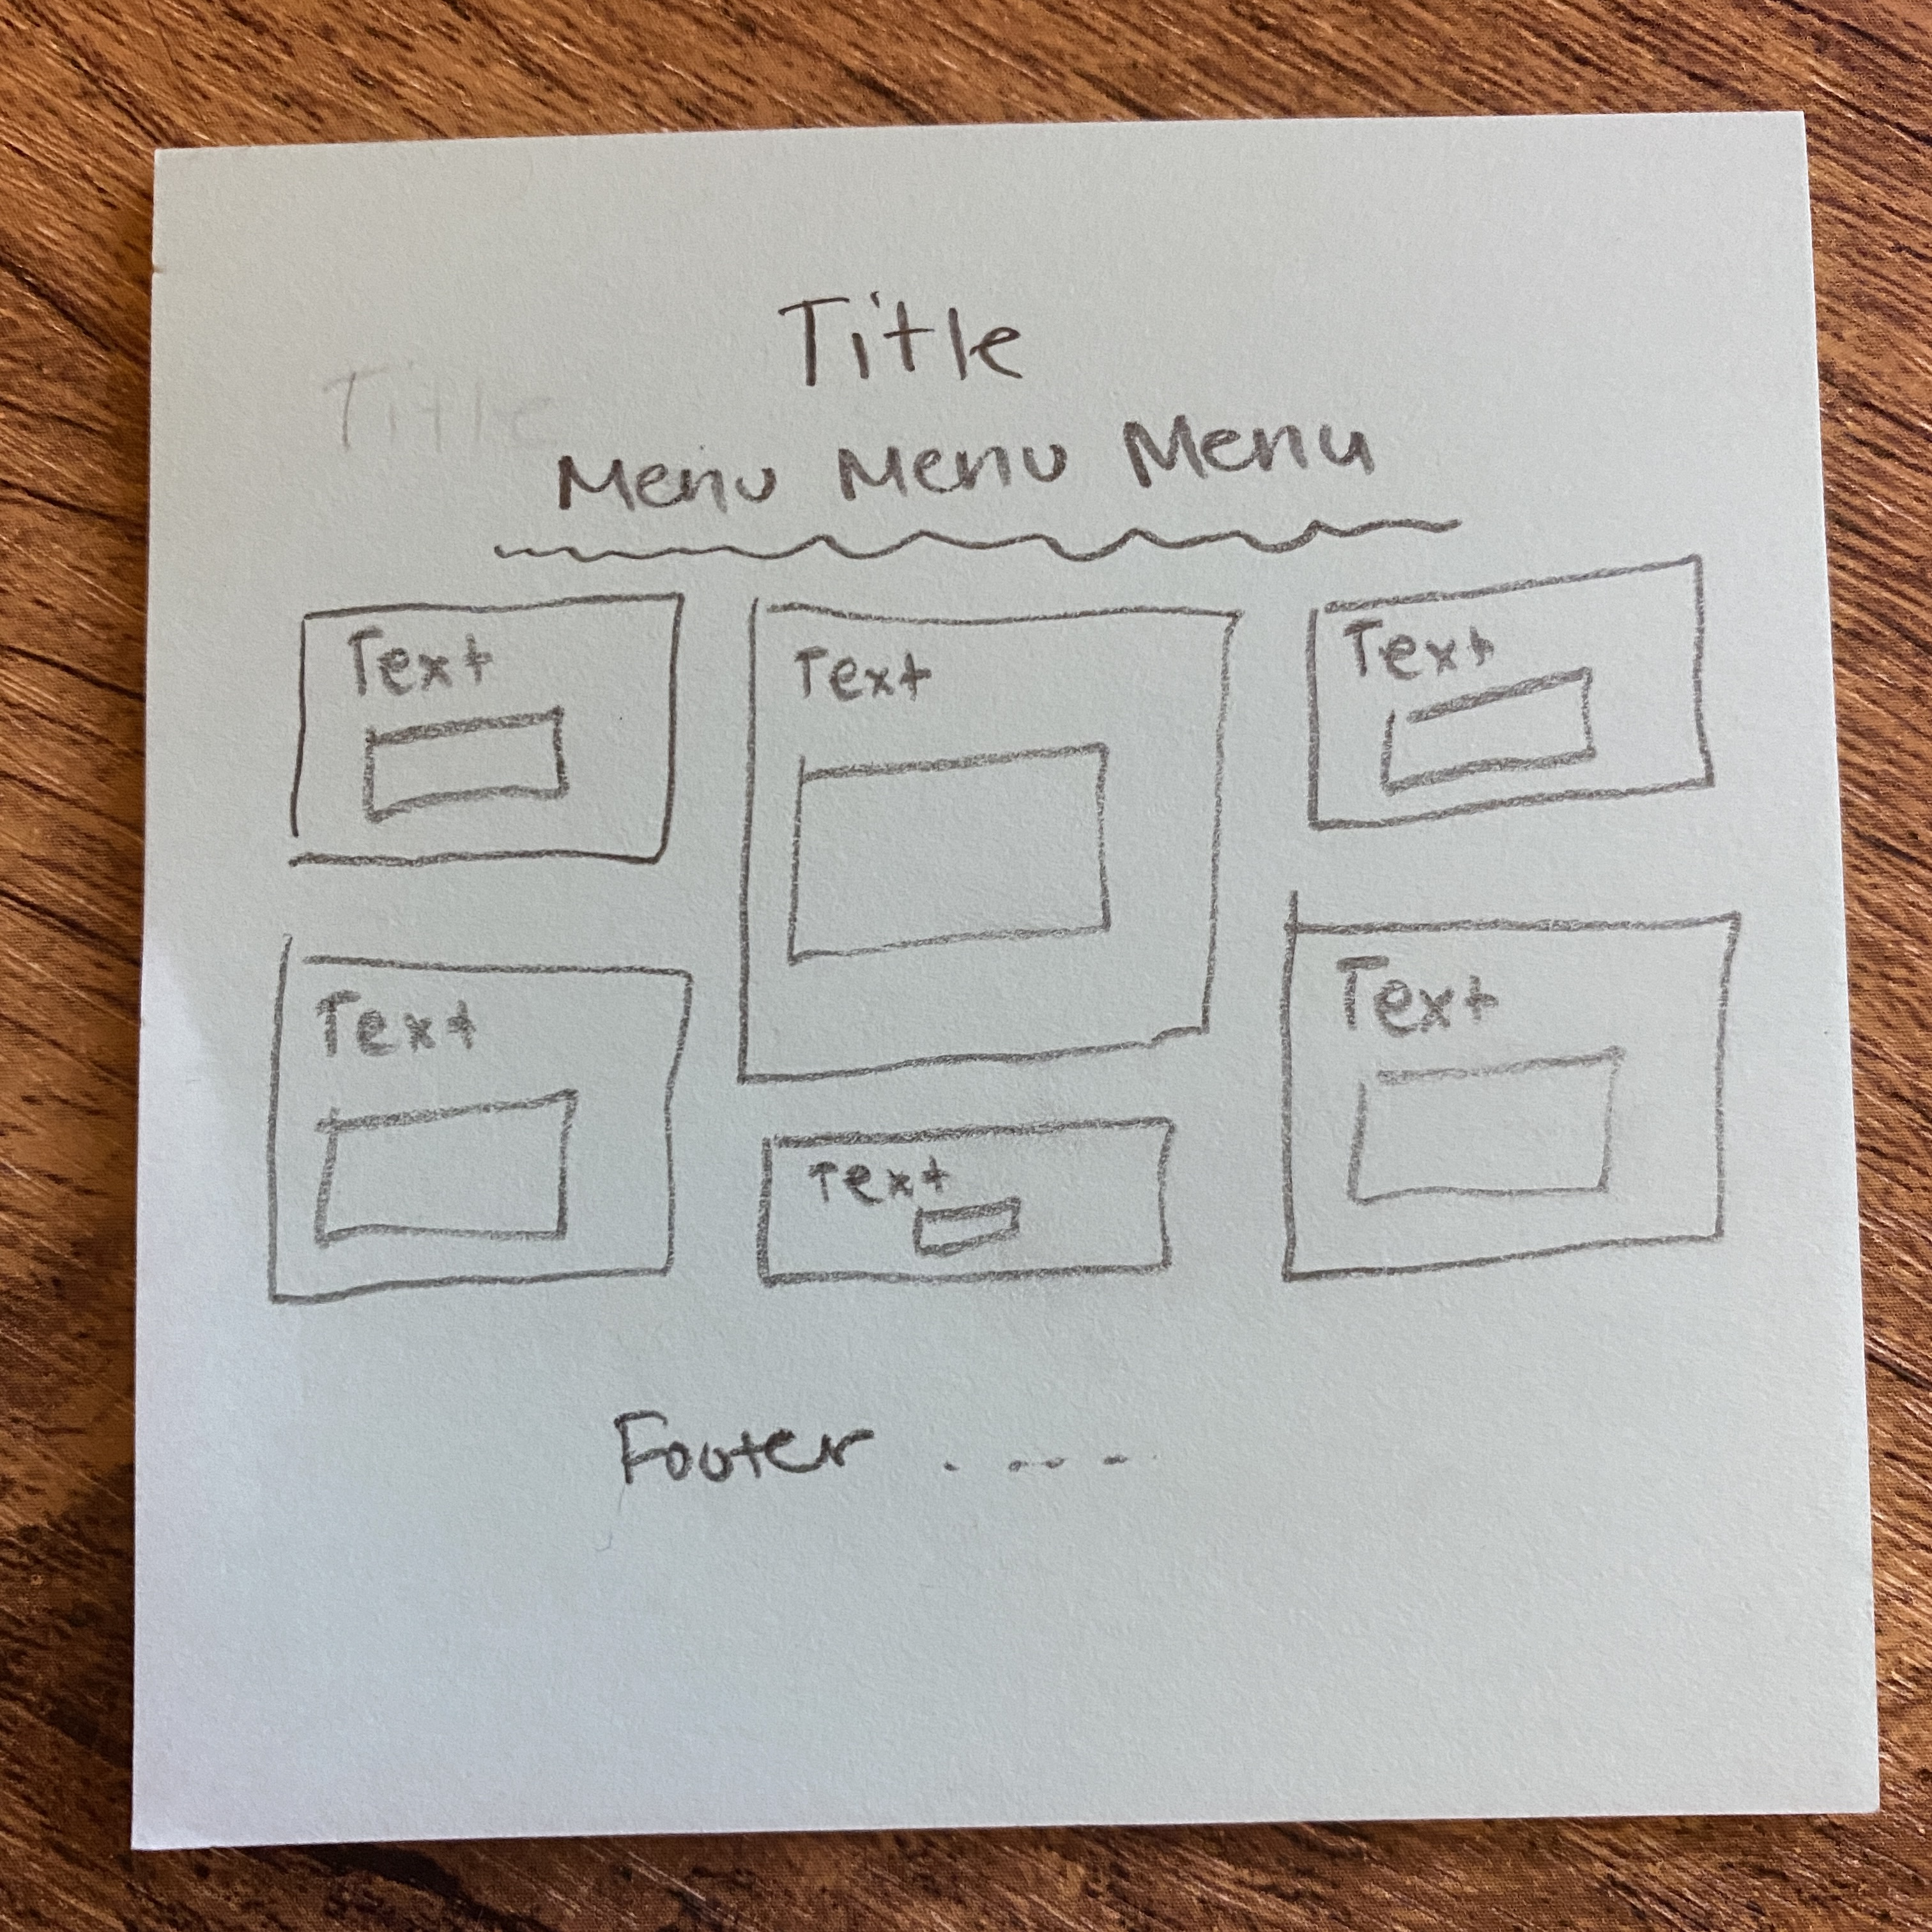 Title
Title
Menu Menu Menu
Text
Text
Text
Text
Text
Text
Footer .....